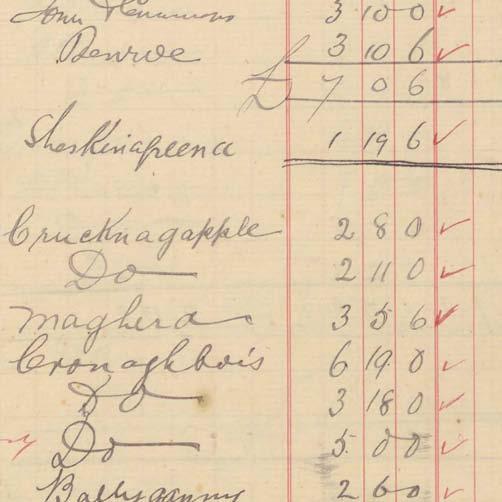 John Timmons 3 10 0 ✓
Benroe 3 10 6 ✓
£ 7 0 6
Sheskinapeena 1 19 6 ✓
Crucknagapple 2 8 0 ✓
Do 2 11 0 ✓
Maghera 3 5 6 ✓
Cronaghbois 6 19 0 ✓
Do 3 18 0 ✓
Do 5 0 0 ✓
2 6 0 ✓